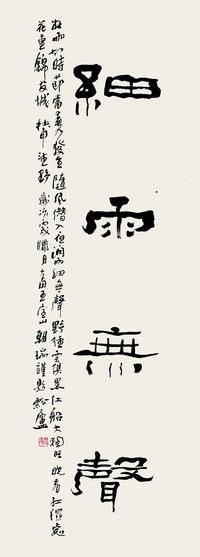 細雨無聲
好雨知時節當春乃發生隨風潛入夜潤物細無聲野徑雲俱黑江船火獨明曉看紅濕處
花重錦官城 杜甫 歲次 臘月 朝瑞謹